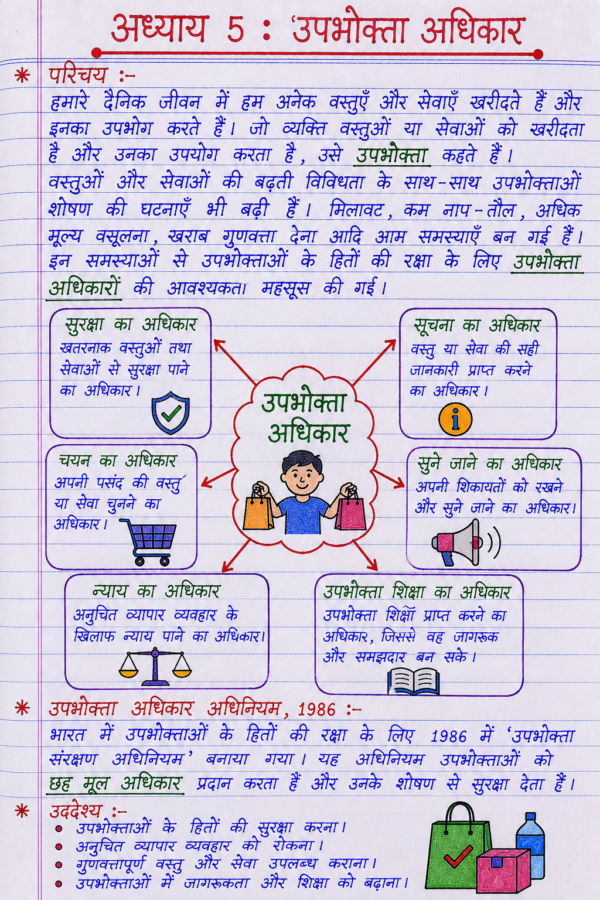 अध्याय 5 : 'उपभोक्ता अधिकार
* परिचय :-
हमारे दैनिक जीवन में हम अनेक वस्तुएँ और सेवाएँ खरीदते हैं और
इनका उपभोग करते हैं। जो व्यक्ति वस्तुओं या सेवाओं को खरीदता
है और उनका उपयोग करता है, उसे उपभोक्ता कहते हैं।
वस्तुओं और सेवाओं की बढ़ती विविधता के साथ-साथ उपभोक्ताओं
शोषण की घटनाएँ भी बढ़ी हैं। मिलावट, कम नाप-तौल, अधिक
मूल्य वसूलना, खराब गुणवत्ता देना आदि आम समस्याएँ बन गई हैं।
इन समस्याओं से उपभोक्ताओं के हितों की रक्षा के लिए उपभोक्ता
अधिकारों की आवश्यकता महसूस की गई।
सुरक्षा का अधिकार
खतरनाक वस्तुओं तथा
सेवाओं से सुरक्षा पाने
का अधिकार।
सूचना का अधिकार
वस्तु या सेवा की सही
जानकारी प्राप्त करने
का अधिकार।
i
उपभोक्ता
अधिकार
चयन का अधिकार
अपनी पसंद की वस्तु
या सेवा चुनने का
अधिकार।
सुने जाने का अधिकार
अपनी शिकायतों को रखने
और सुने जाने का अधिकार।
न्याय का अधिकार
अनुचित व्यापार व्यवहार के
खिलाफ न्याय पाने का अधिकार।
उपभोक्ता शिक्षा का अधिकार
उपभोक्ता शिक्षाॅ प्राप्त करने का
अधिकार, जिससे वह जागरूक
और समझदार बन सके।
* उपभोक्ता अधिकार अधिनियम, 1986 :-
भारत में उपभोक्ताओं के हितों की रक्षा के लिए 1986 में 'उपभोक्ता
संरक्षण अधिनियम' बनाया गया। यह अधिनियम उपभोक्ताओं को
छह मूल अधिकार प्रदान करता हैं और उनके शोषण से सुरक्षा देता हैं।
* उददेश्य :-
• उपभोक्ताओं के हितों की सुरक्षा करना।
• अनुचित व्यापार व्यवहार को रोकना।
• गुणवत्तापूर्ण वस्तु और सेवा उपलब्ध कराना।
• उपभोक्ताओं में जागरूकता और शिक्षा को बढ़ाना।